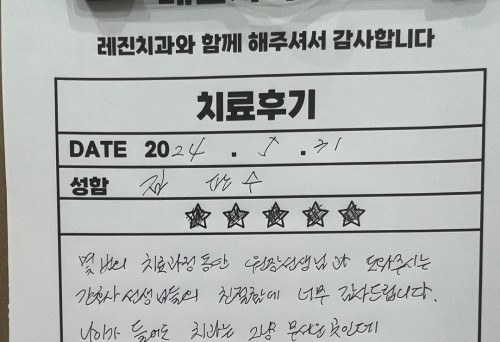 레진치과와 함께 해주셔서 감사합니다
치료후기
DATE 2024 . 5 . 31
성함
몇 번의 치료과정 동안 원장선생님과 도와주시는
간호사 선생님들의 친절함에 너무 감사드립니다.
나이가 들어도 치과는 그냥 무서운 곳인데